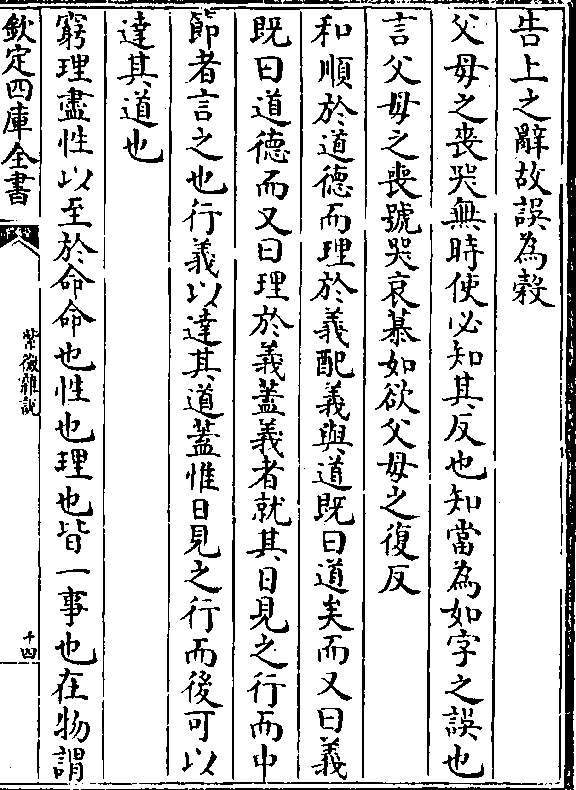 告上之辭故誤為穀
父母之喪哭無時使必知其反也知當為如字之誤也
言父母之喪號哭哀慕如欲父母之復反
和順於道德而理於義配義與道既曰道矣而又曰義
既曰道德而又曰理於義蓋義者就其日見之行而中
節者言之也行義以達其道蓋惟日見之行而後可以
達其道也
窮理盡性以至於命命也性也理也皆一事也在物謂
欽定四庫全書
紫微雜說
十四